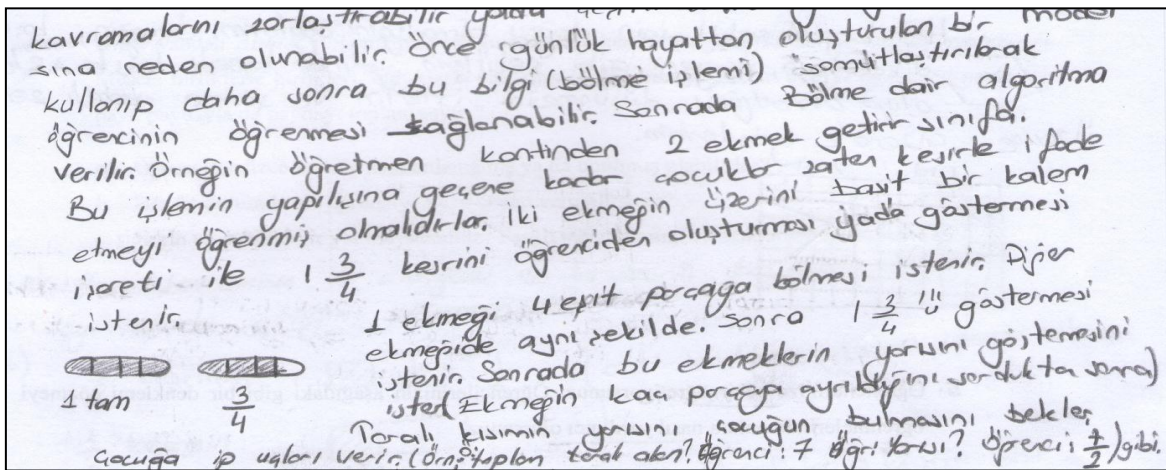 kavramalarını zorlaştırabilir
sına neden olunabilir. Önce günlük hayattan oluşturulan bir model
kullanıp daha sonra bu bilgi (bölme işlemi) somutlaştırılarak
öğrencinin öğrenmesi sağlanabilir. Sonrada Bölme dair algoritma
verilir. Örneğin öğretmen kantinden 2 ekmek getirir sınıfa.
Bu işlemin yapılışına geçene kadar çocuklar zaten kesirle ifade
etmeyi öğrenmiş olmalıdırlar. İki ekmeğin üzerini basit bir kalem
işareti ile 1 3/4 kesrini öğrenciden oluşturması yada göstermesi
istenir. 1 ekmeği 4 eşit parçaya bölmesi istenir. Diğer
ekmeğide aynı şekilde. Sonra 1 3/4 ü göstermesi
istenir. Sonrada bu ekmeklerin yarısını göstermesini
1 tam 3/4 ister (Ekmeğin kaç parçaya ayrıldığını sorduktan sonra)
Taralı kısımın yarısını çocuğun bulmasını bekler
Çocuğa ip uçları verir. (Örn: toplam taralı alan? Öğrenci: 7 Öğrt: Yarısı? Öğrenci: 7/2) gibi.